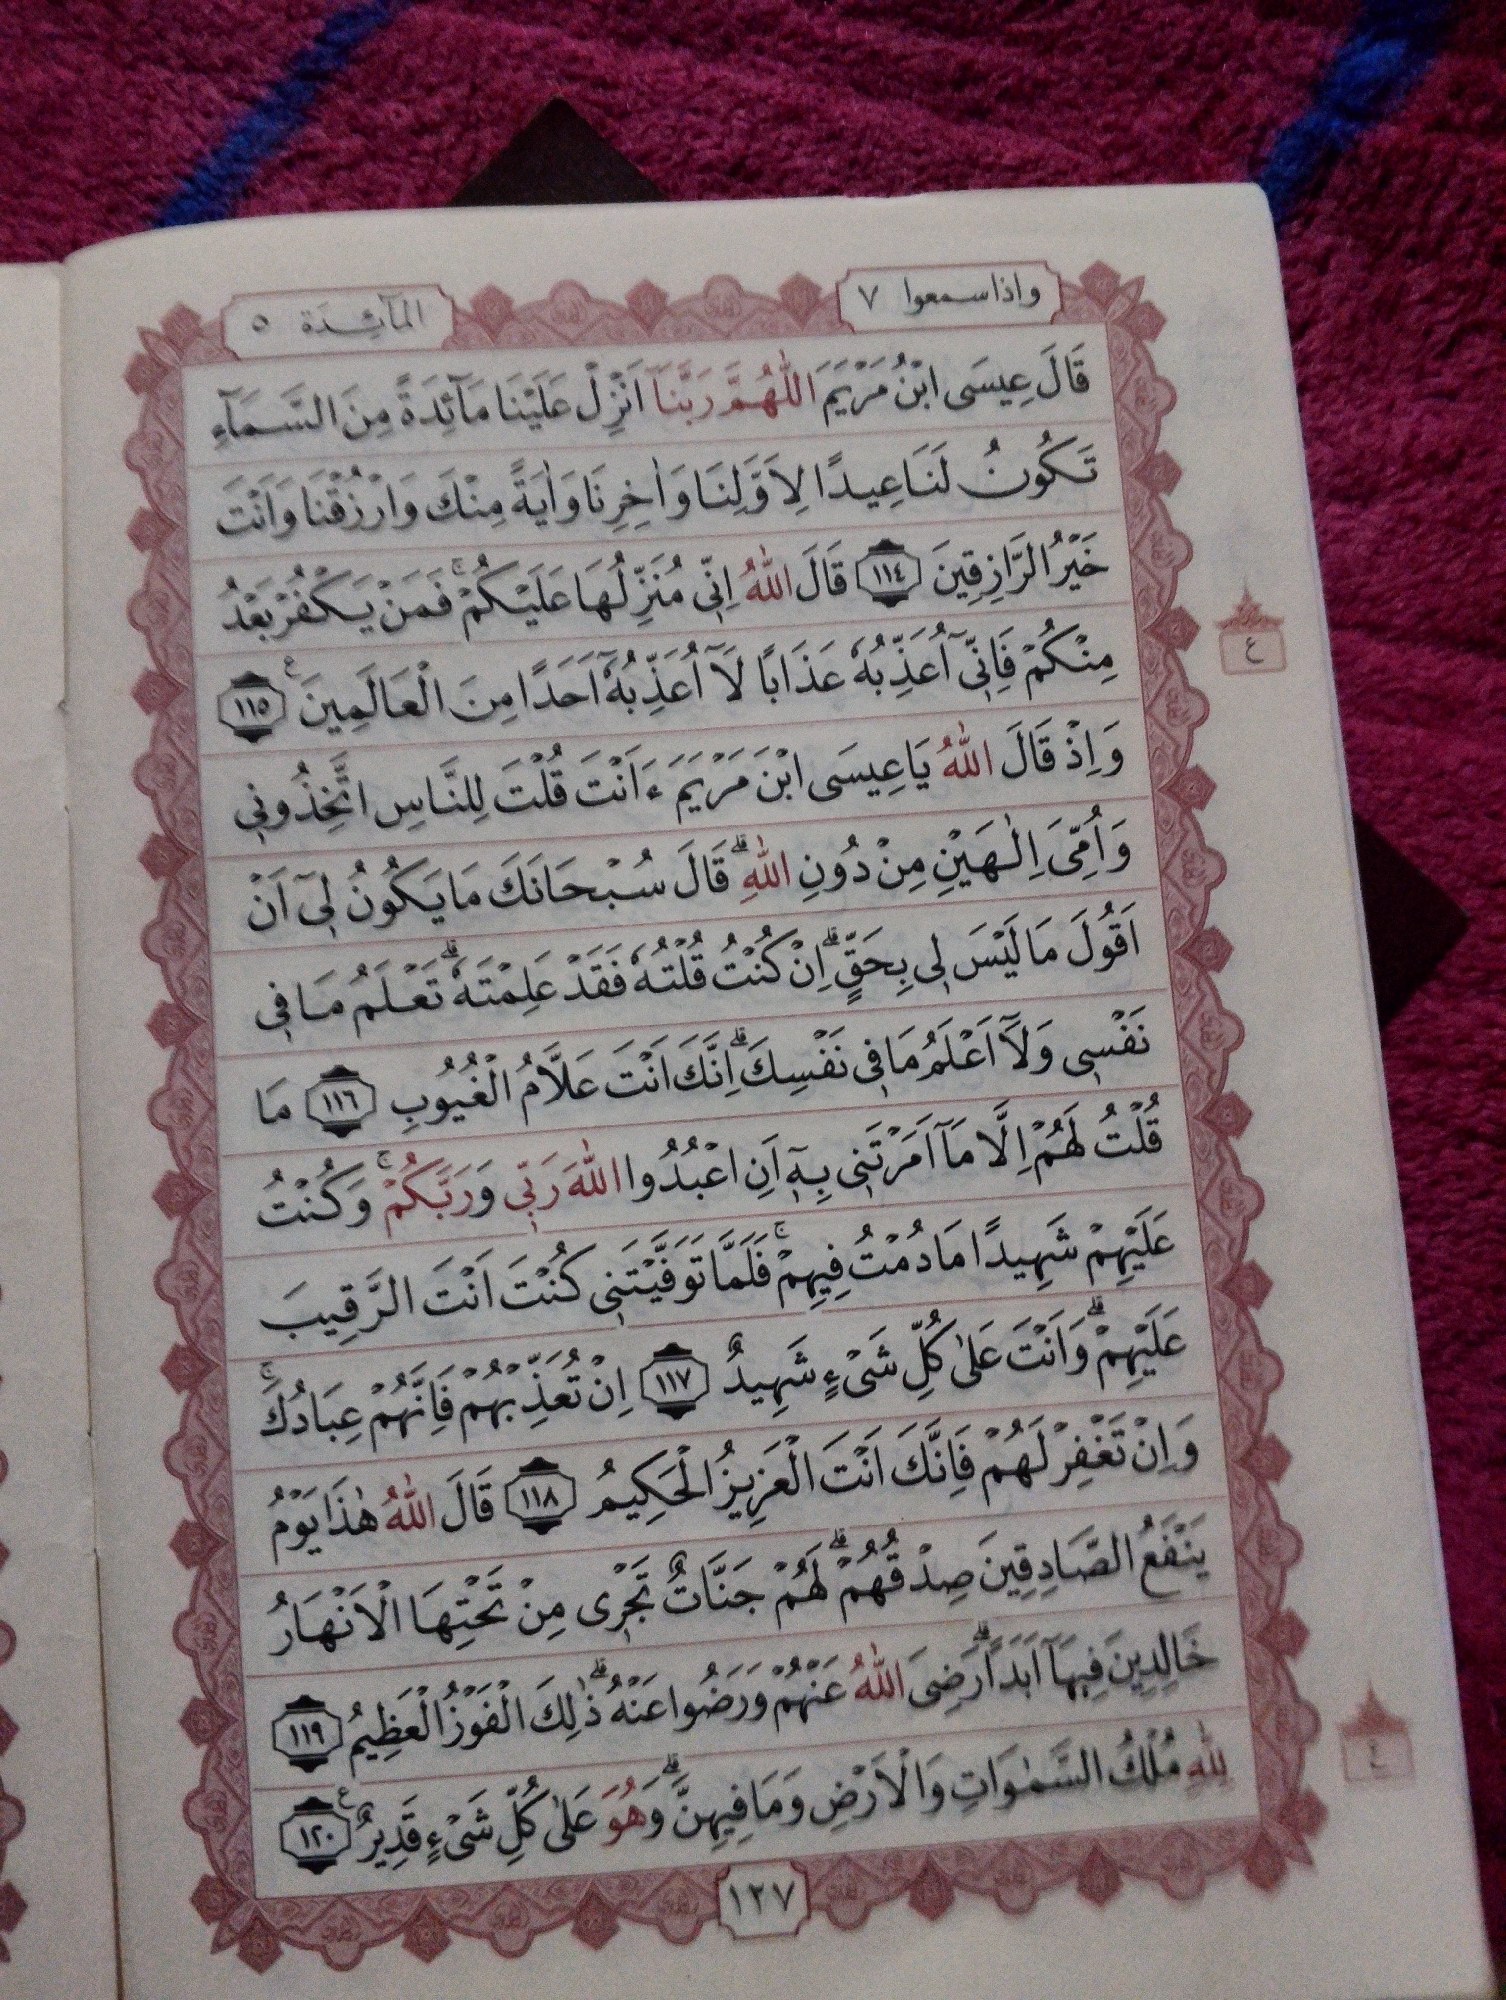 واذاسمعوا ٧
المآئدة ٥
قَالَ عِيسَى ابْنُ مَرْيَمَ اللّٰهُمَّ رَبَّنَآ اَنْزِلْ عَلَيْنَا مَآئِدَةً مِنَ السَّمَآءِ
تَكُونُ لَنَا عِيدًا لِاَوَّلِنَا وَاٰخِرِنَا وَاٰيَةً مِنْكَ وَارْزُقْنَا وَاَنْتَ
خَيْرُ الرَّازِقِينَ ١١٤ قَالَ اللّٰهُ اِنِّى مُنَزِّلُهَا عَلَيْكُمْۚ فَمَنْ يَكْفُرْ بَعْدُ
مِنْكُمْ فَاِنِّىٓ اُعَذِّبُهُ عَذَابًا لَآ اُعَذِّبُهُٓ اَحَدًا مِنَ الْعَالَمِينَ ع ١١٥
وَاِذْ قَالَ اللّٰهُ يَاعِيسَى ابْنَ مَرْيَمَ ءَاَنْتَ قُلْتَ لِلنَّاسِ اتَّخِذُونِى
وَاُمِّىَ اِلٰهَيْنِ مِنْ دُونِ اللّٰهِۗ قَالَ سُبْحَانَكَ مَايَكُونُ لِىٓ اَنْ
اَقُولَ مَالَيْسَ لِى بِحَقٍّۗ اِنْ كُنْتُ قُلْتُهُ فَقَدْ عَلِمْتَهُۗ تَعْلَمُ مَا فِى
نَفْسِى وَلَآ اَعْلَمُ مَا فِى نَفْسِكَۗ اِنَّكَ اَنْتَ عَلَّامُ الْغُيُوبِ ١١٦ مَا
قُلْتُ لَهُمْ اِلَّا مَآ اَمَرْتَنِى بِهِٓ اَنِ اعْبُدُوا اللّٰهَ رَبِّى وَرَبَّكُمْۚ وَكُنْتُ
عَلَيْهِمْ شَهِيدًا مَادُمْتُ فِيهِمْۚ فَلَمَّا تَوَفَّيْتَنِى كُنْتَ اَنْتَ الرَّقِيبَ
عَلَيْهِمْۗ وَاَنْتَ عَلٰى كُلِّ شَىْءٍ شَهِيدٌ ١١٧ اِنْ تُعَذِّبْهُمْ فَاِنَّهُمْ عِبَادُكَۚ
وَاِنْ تَغْفِرْ لَهُمْ فَاِنَّكَ اَنْتَ الْعَزِيزُ الْحَكِيمُ ١١٨ قَالَ اللّٰهُ هٰذَا يَوْمُ
يَنْفَعُ الصَّادِقِينَ صِدْقُهُمْۗ لَهُمْ جَنَّاتٌ تَجْرِى مِنْ تَحْتِهَا الْاَنْهَارُ
خَالِدِينَ فِيهَآ اَبَدًاۗ رَضِىَ اللّٰهُ عَنْهُمْ وَرَضُوا عَنْهُۗ ذٰلِكَ الْفَوْزُ الْعَظِيمُ ١١٩
لِلّٰهِ مُلْكُ السَّمٰوَاتِ وَالْاَرْضِ وَمَا فِيهِنَّۗ وَهُوَ عَلٰى كُلِّ شَىْءٍ قَدِيرٌ ع ١٢٠
١٢٧
ع